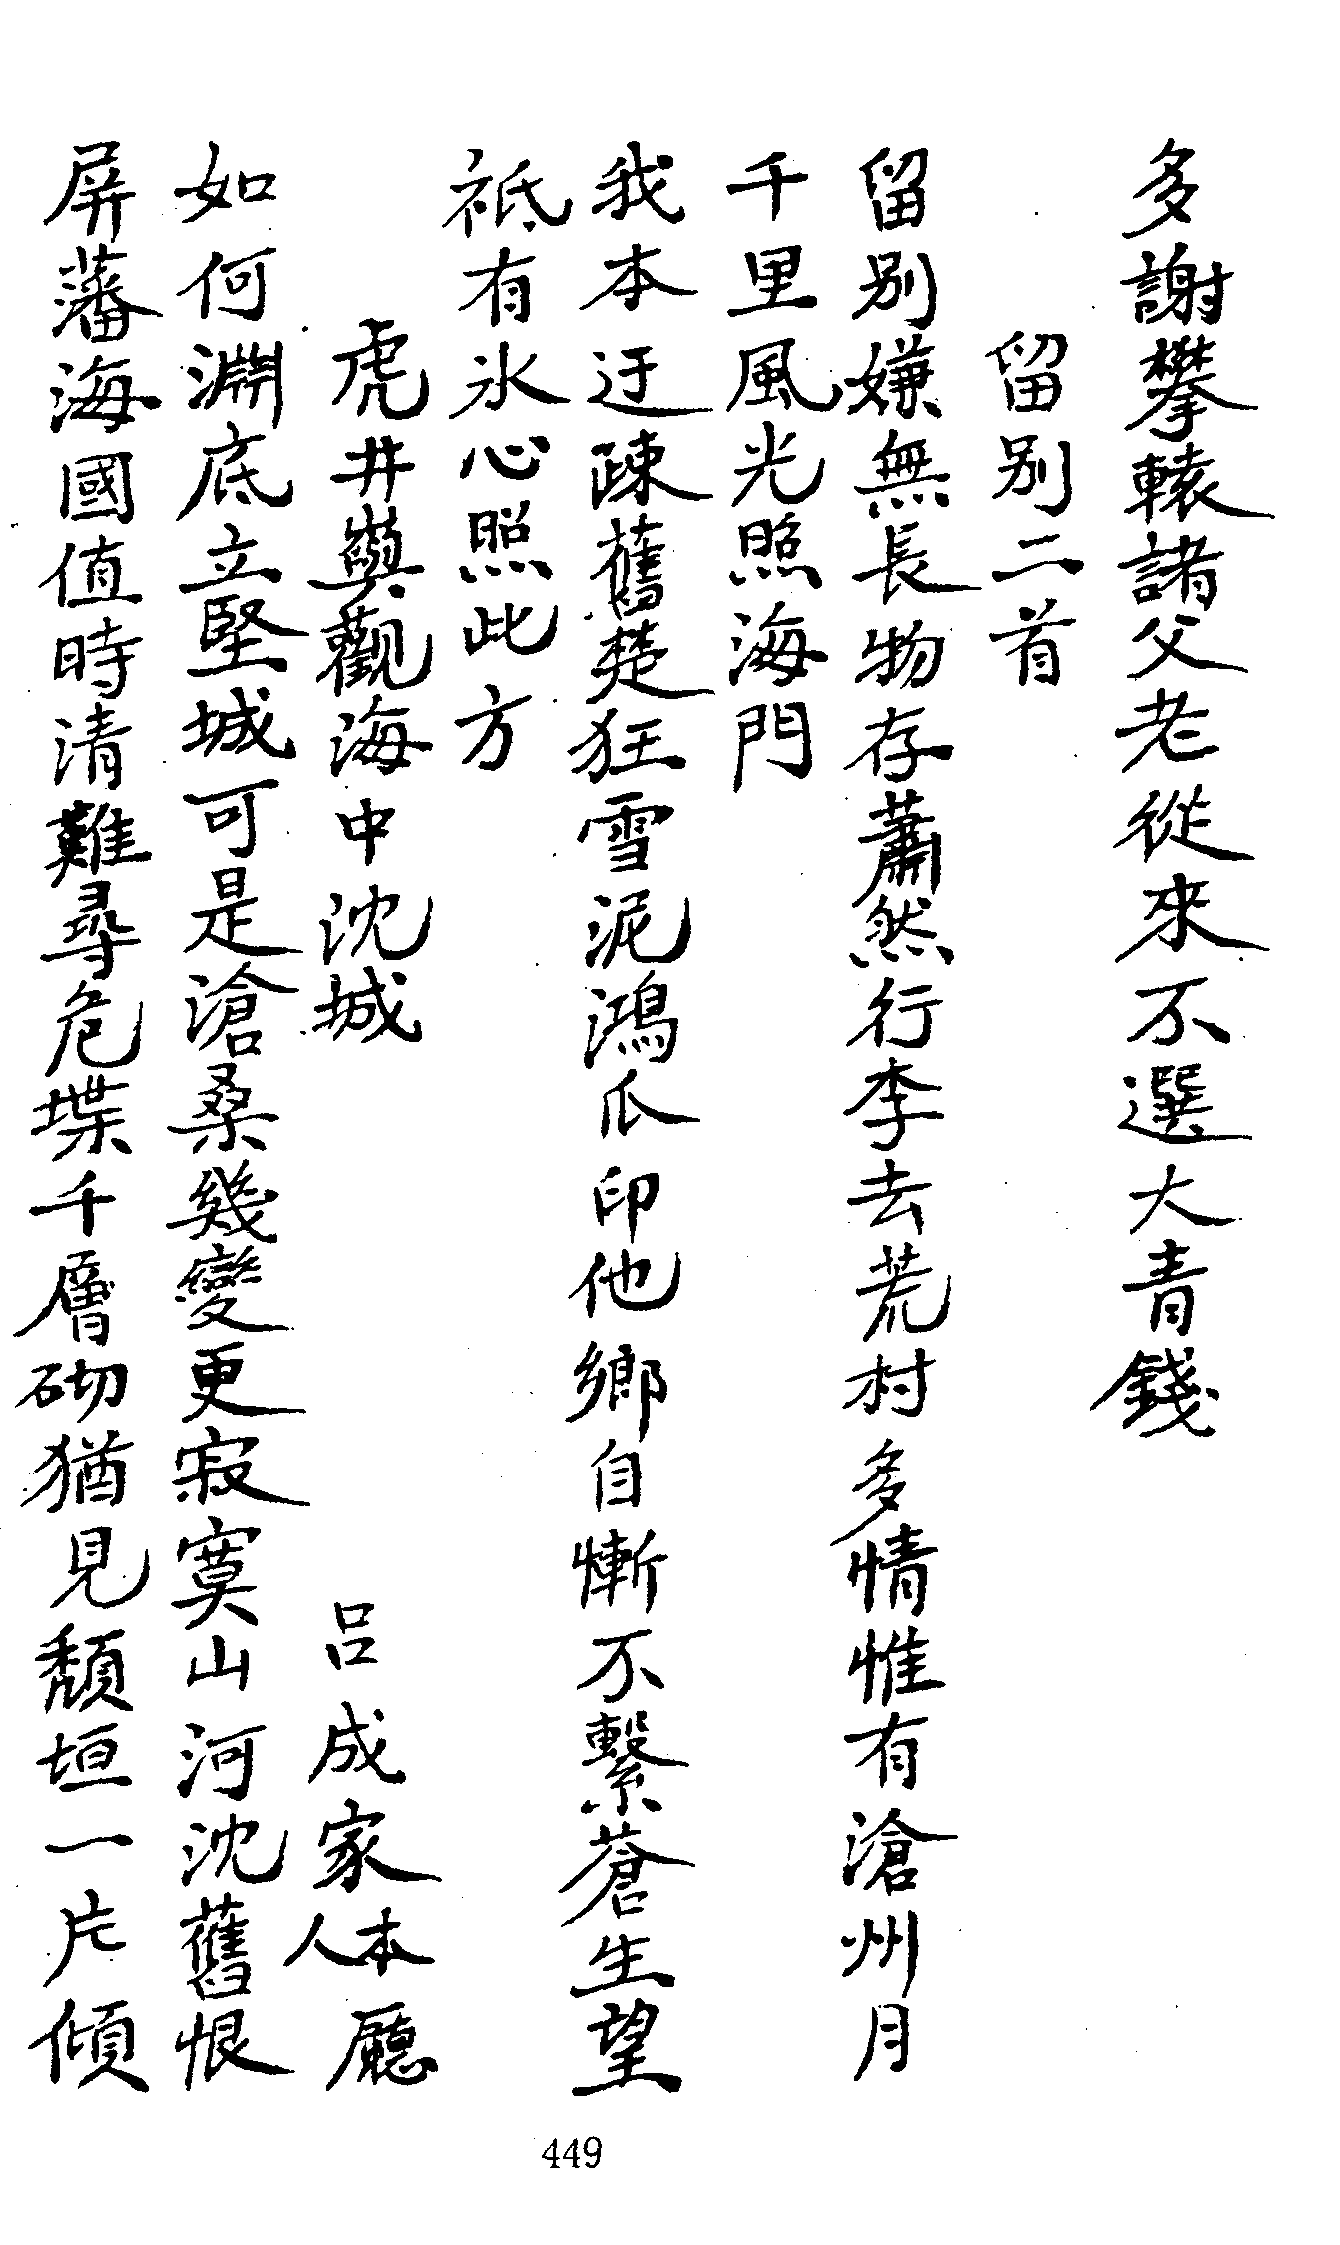 多謝攀轅諸父老從來不選大青錢
留別二首
留別嫌無長物存蕭然行李去荒村多情惟有滄州月
千里風光照海門
我本迂疎舊楚狂雪泥鴻爪印他鄉自慚不繫蒼生望
祇有氷心照此方
虎井嶼觀海中沈城 呂成家本廳人
如何淵底立堅城可是滄桑幾變更寂寞山河沈舊恨
屏藩海國值時清難尋危堞千層砌猶見頹垣一片傾
449